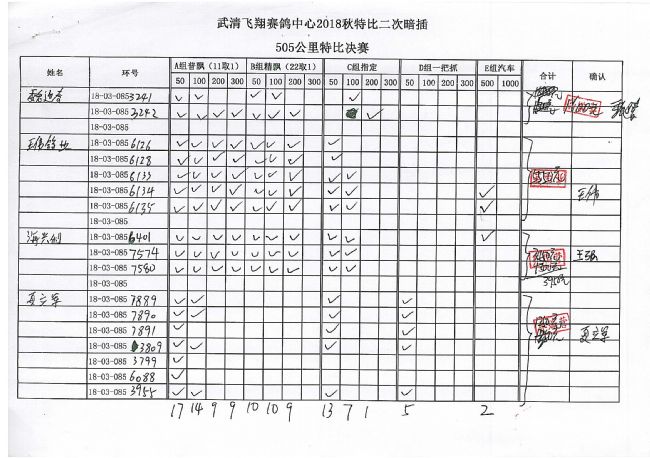 武清飞翔赛鸽中心2018秋特比二次暗插
505公里特比决赛
姓名 环号 A组普飘（11取1） B组精飘（22取1） C组指定 D组一把抓 E组汽车 合计 确认
50 100 200 300 50 100 200 300 50 100 200 300 50 100 200 300 500 1000
18-03-0853241 ✓ ✓ ✓ ✓ ✓
18-03-0853242 ✓ ✓ ✓ ✓ ✓ ✓ ✓ ✓
18-03-085
18-03-0856126 ✓ ✓ ✓ ✓ ✓ ✓ ✓ ✓
18-03-0856128 ✓ ✓ ✓ ✓ ✓ ✓ ✓ ✓
18-03-0856133 ✓ ✓ ✓ ✓ ✓ ✓ ✓ ✓ ✓
18-03-0856134 ✓ ✓ ✓ ✓ ✓ ✓ ✓ ✓ ✓ ✓
王伟
18-03-0856135 ✓ ✓ ✓ ✓ ✓ ✓ ✓ ✓ ✓ ✓
18-03-085
18-03-0856401 ✓ ✓ ✓ ✓ ✓ ✓ ✓ ✓ ✓ ✓
18-03-0857574 ✓ ✓ ✓ ✓ ✓ ✓ ✓ ✓ ✓
18-03-0857580 ✓ ✓ ✓ ✓ ✓ ✓ ✓ ✓ ✓
18-03-085
夏立军 18-03-0857889 ✓ ✓ ✓ ✓
18-03-0857890 ✓ ✓ ✓ ✓
18-03-0857891 ✓ ✓ ✓
夏立军
18-03-0853809 ✓ ✓ ✓ ✓
18-03-0853799 ✓
18-03-0856088 ✓
18-03-0853955 ✓ ✓ ✓ ✓
17 14 9 9 10 10 9 13 7 1 5 2